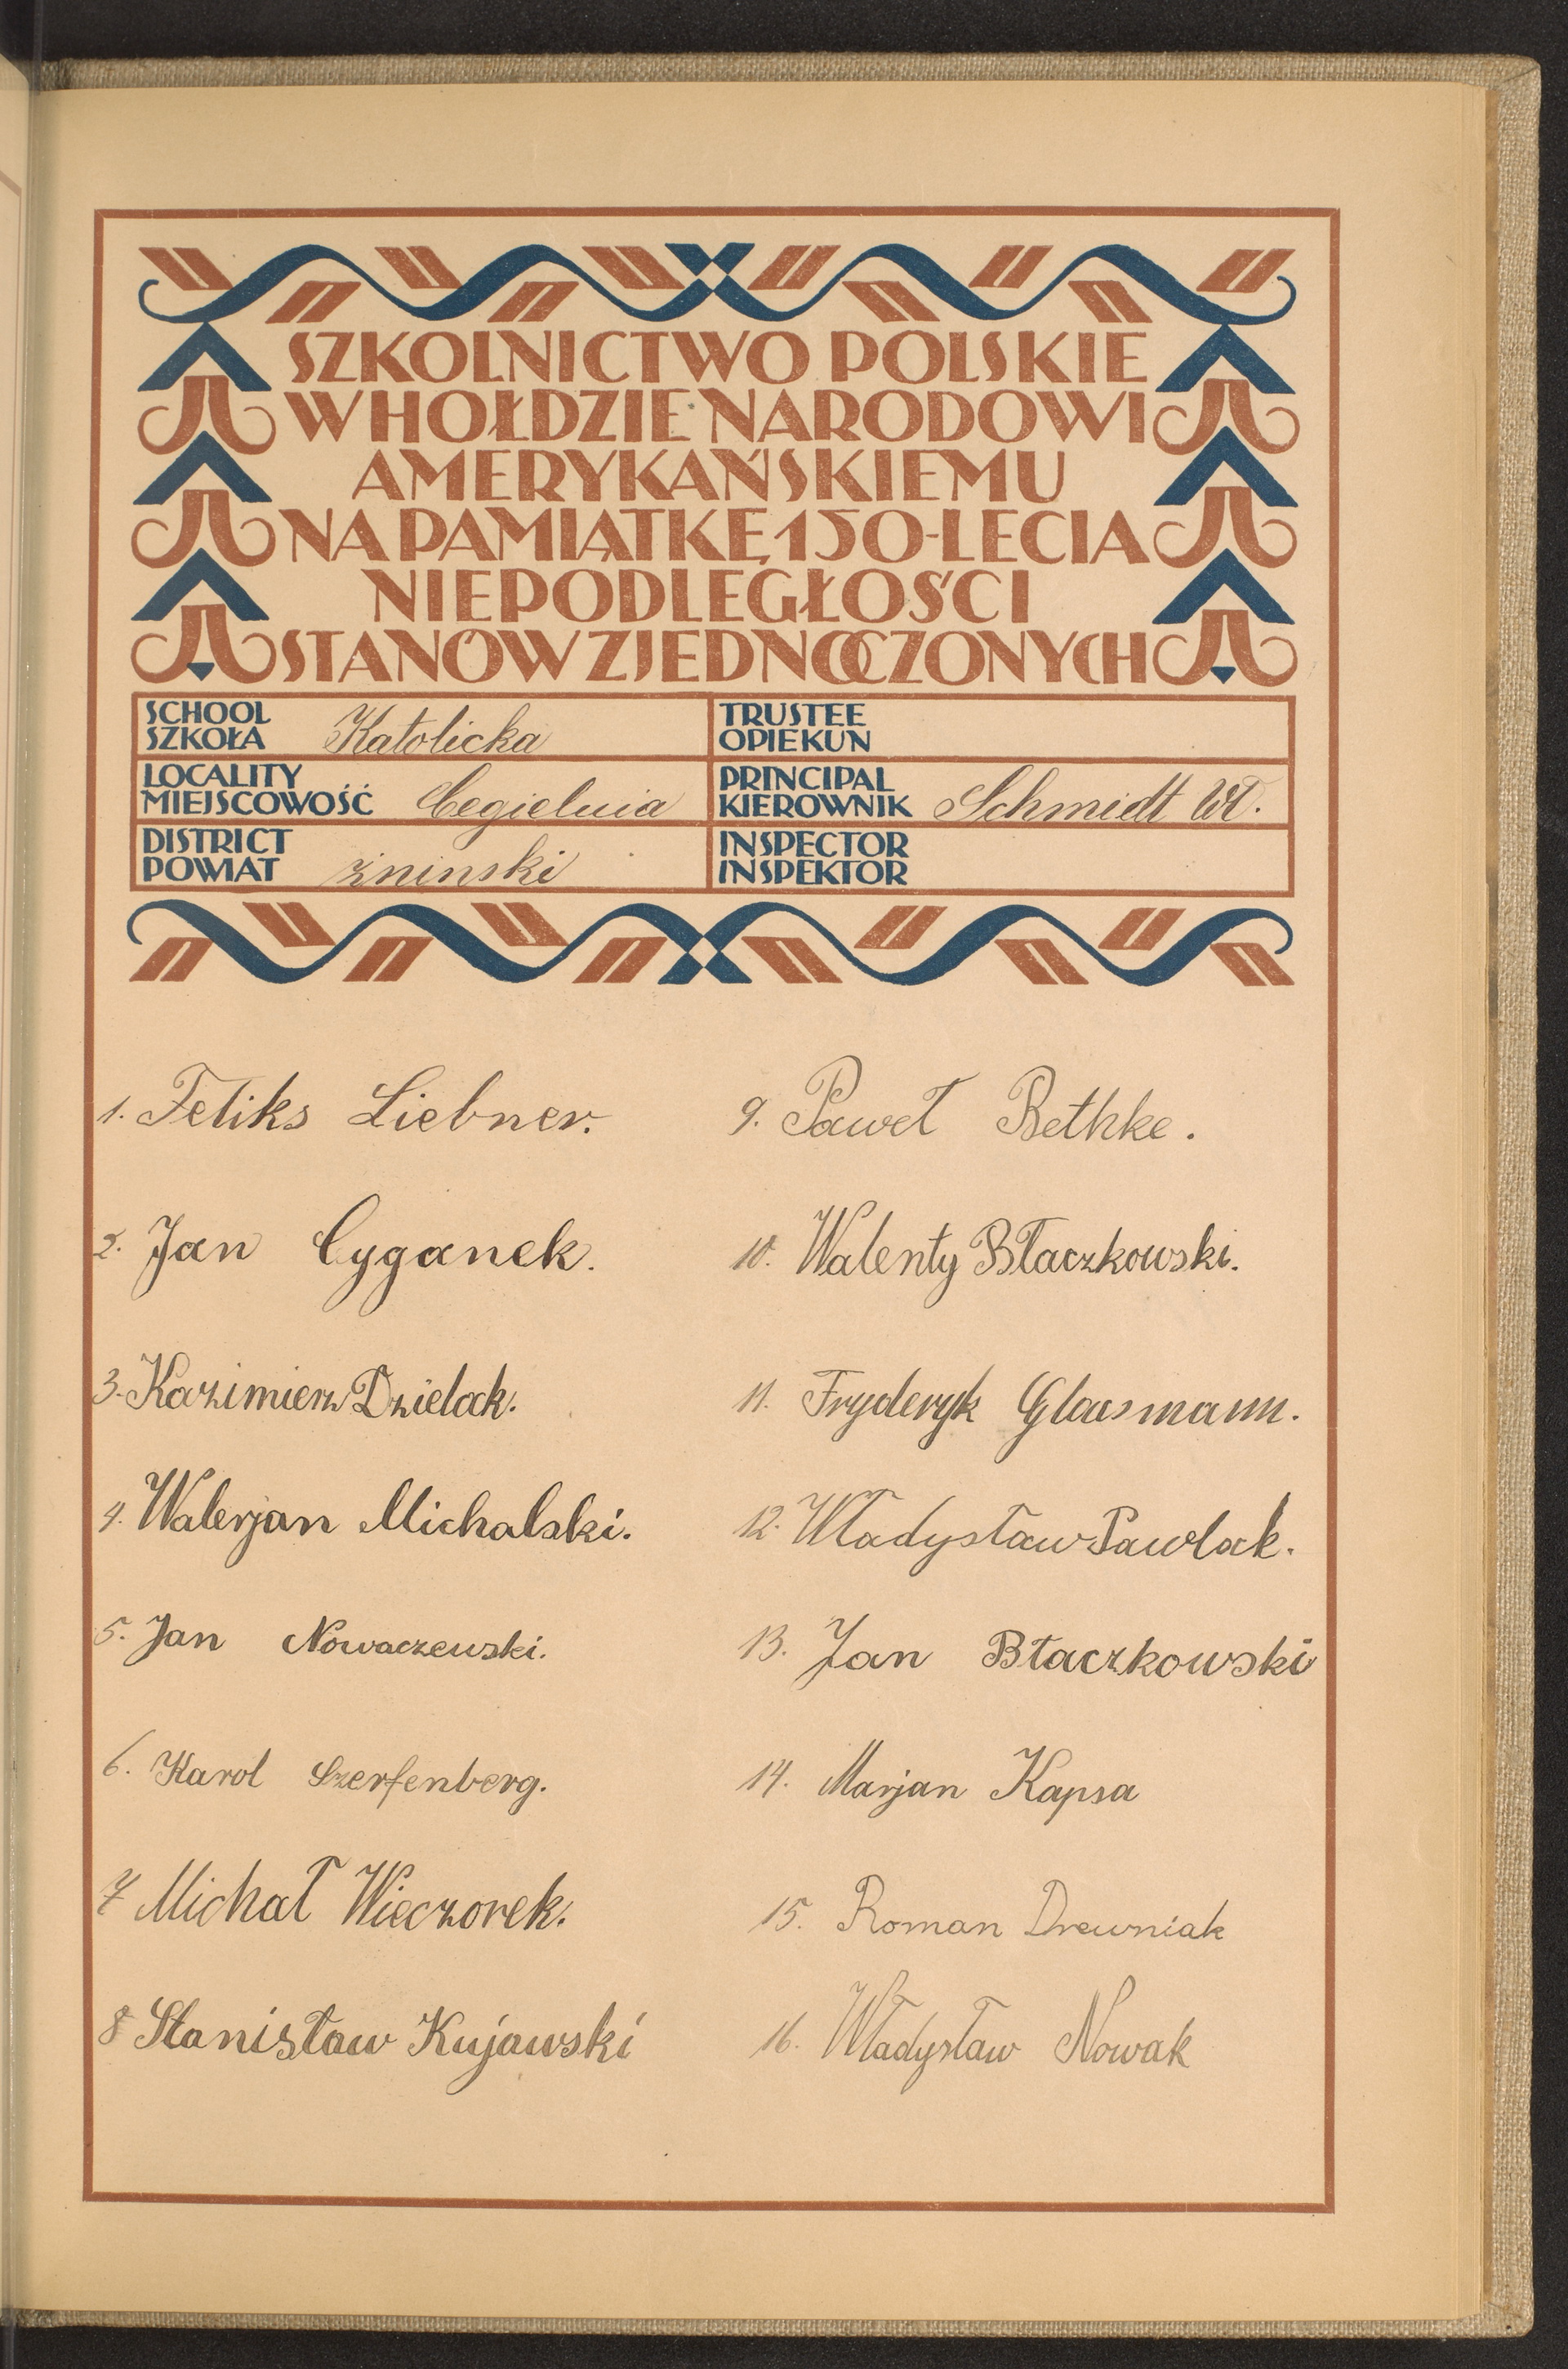 SZKOLNICTWO POLSKIE
W HOŁDZIE NARODOWI
AMERYKAŃSKIEMU
NA PAMIĄTKĘ 150-LECIA
NIEPODLEGŁOŚCI
STANÓW ZJEDNOCZONYCH
SCHOOL
SZKOŁA Katolicka
TRUSTEE
OPIEKUN
LOCALITY
MIEJSCOWOŚĆ Cegielnia
PRINCIPAL
KIEROWNIK Schmidt Wł.
DISTRICT
POWIAT żninski
INSPECTOR
INSPEKTOR
1. Feliks Liebner.
2. Jan Cyganek.
3. Kazimierz Dzielak.
4. Walerjan Michalski.
5. Jan Nowaczewski.
6. Karol Szerfenberg.
7 Michał Wieczorek.
8 Stanisław Kujawski
9. Paweł Bethke.
10. Walenty Błaczkowski.
11. Fryderyk Glausmann.
12. Władysław Pawlak.
13. Jan Błaczkowski
14. Marjan Kapsa
15. Roman Drewniak
16. Władysław Nowak